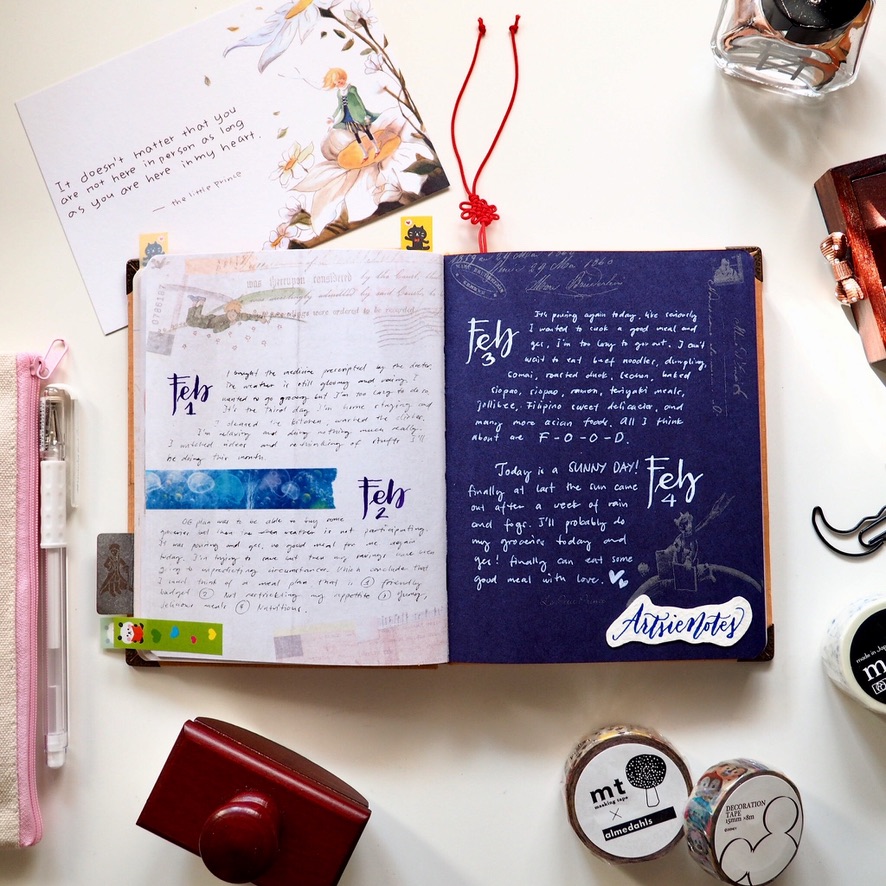 It doesn't matter that you
are not here in person as long
as you are here in my heart.
— the little prince
was thereupon transferred by the
ings were ordered to be recorded
0786187
Feb
1
I bought the medicine prescripted by the doctor.
The weather is still gloomy and rainy. I
wanted to go grocery but I'm too lazy to do so.
It's the third day I'm home staying and
I cleaned the kitchen, washed the clothes,
I'm relaxing and doing nothing much really.
I watched videos and rethinking of stuffs I'll
be doing this month.
Feb
2
OG plan was to be able to buy some
groceries but then the when weather is not participating.
It was pouring and yes, no good meal for me again
today. I'm trying to save but then my savings have been
to unpredicting circumstances. Which conclude that
I can't think of a meal plan that is ① friendly
budget ② Not restricting my appetite ③ Yummy,
delicious meals ④ Nutritious.
1860
Feb
3
It's pouring again today, like seriously
I wanted to cook a good meal and
yes, I'm too lazy to go out. I can't
wait to eat beef noodles, dumpling,
somai, roasted duck, lechon, baked
siopao, siopao, ramen, teriyaki meals,
jollibee, Filipino sweet delicacies, and
many more asian foods. All I think
about are F-O-O-D.
Feb
4
Today is a SUNNY DAY!
finally at last the sun came
out after a week of rain
and fogs. I'll probably do
my groceries today and
yes! finally can eat some
good meal with love.
ArtsieNotes
made in Japan
m
mt
masking tape
×
almedahls
DECORATION
TAPE
15mm×8m